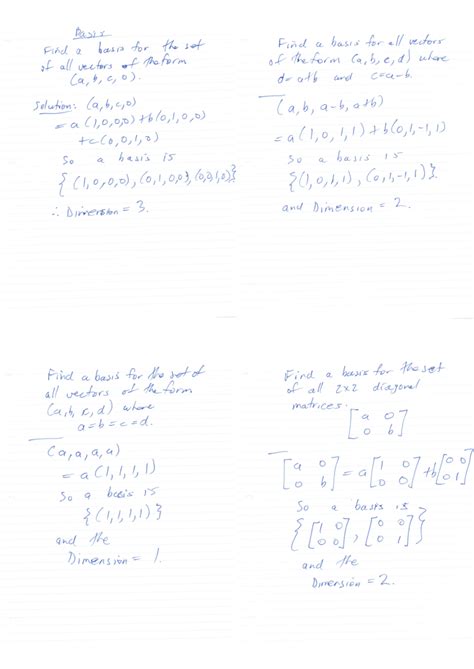 Basis
Find a basis for the set
of all vectors of the form
(a, b, c, 0).
Solution: (a, b, c, 0)
= a(1,0,0,0)+b(0,1,0,0)
+c(0,0,1,0)
So a basis is
{(1,0,0,0), (0,1,0,0), (0,0,1,0)}
∴ Dimension = 3.
Find a basis for all vectors
of the form (a, b, c, d) where
d = a+b and c = a-b.
(a, b, a-b, a+b)
= a(1, 0, 1, 1)+b(0,1,-1,1)
So a basis is
{(1,0,1,1), (0,1,-1,1)}
and Dimension = 2.
Find a basis for the set of
all vectors of the form
(a, b, c, d) where
a=b=c=d.
(a, a, a, a)
= a(1, 1, 1, 1)
So a basis is
{(1,1,1,1)}
and the
Dimension = 1.
Find a basis for the set
of all 2x2 diagonal
matrices.
[a 0
0 b]
[a 0 = a[1 0 + b[0 0
0 b] 0 0] 0 1]
So a basis is
{[1 0, [0 0
0 0] 0 1]}
and the
Dimension = 2.